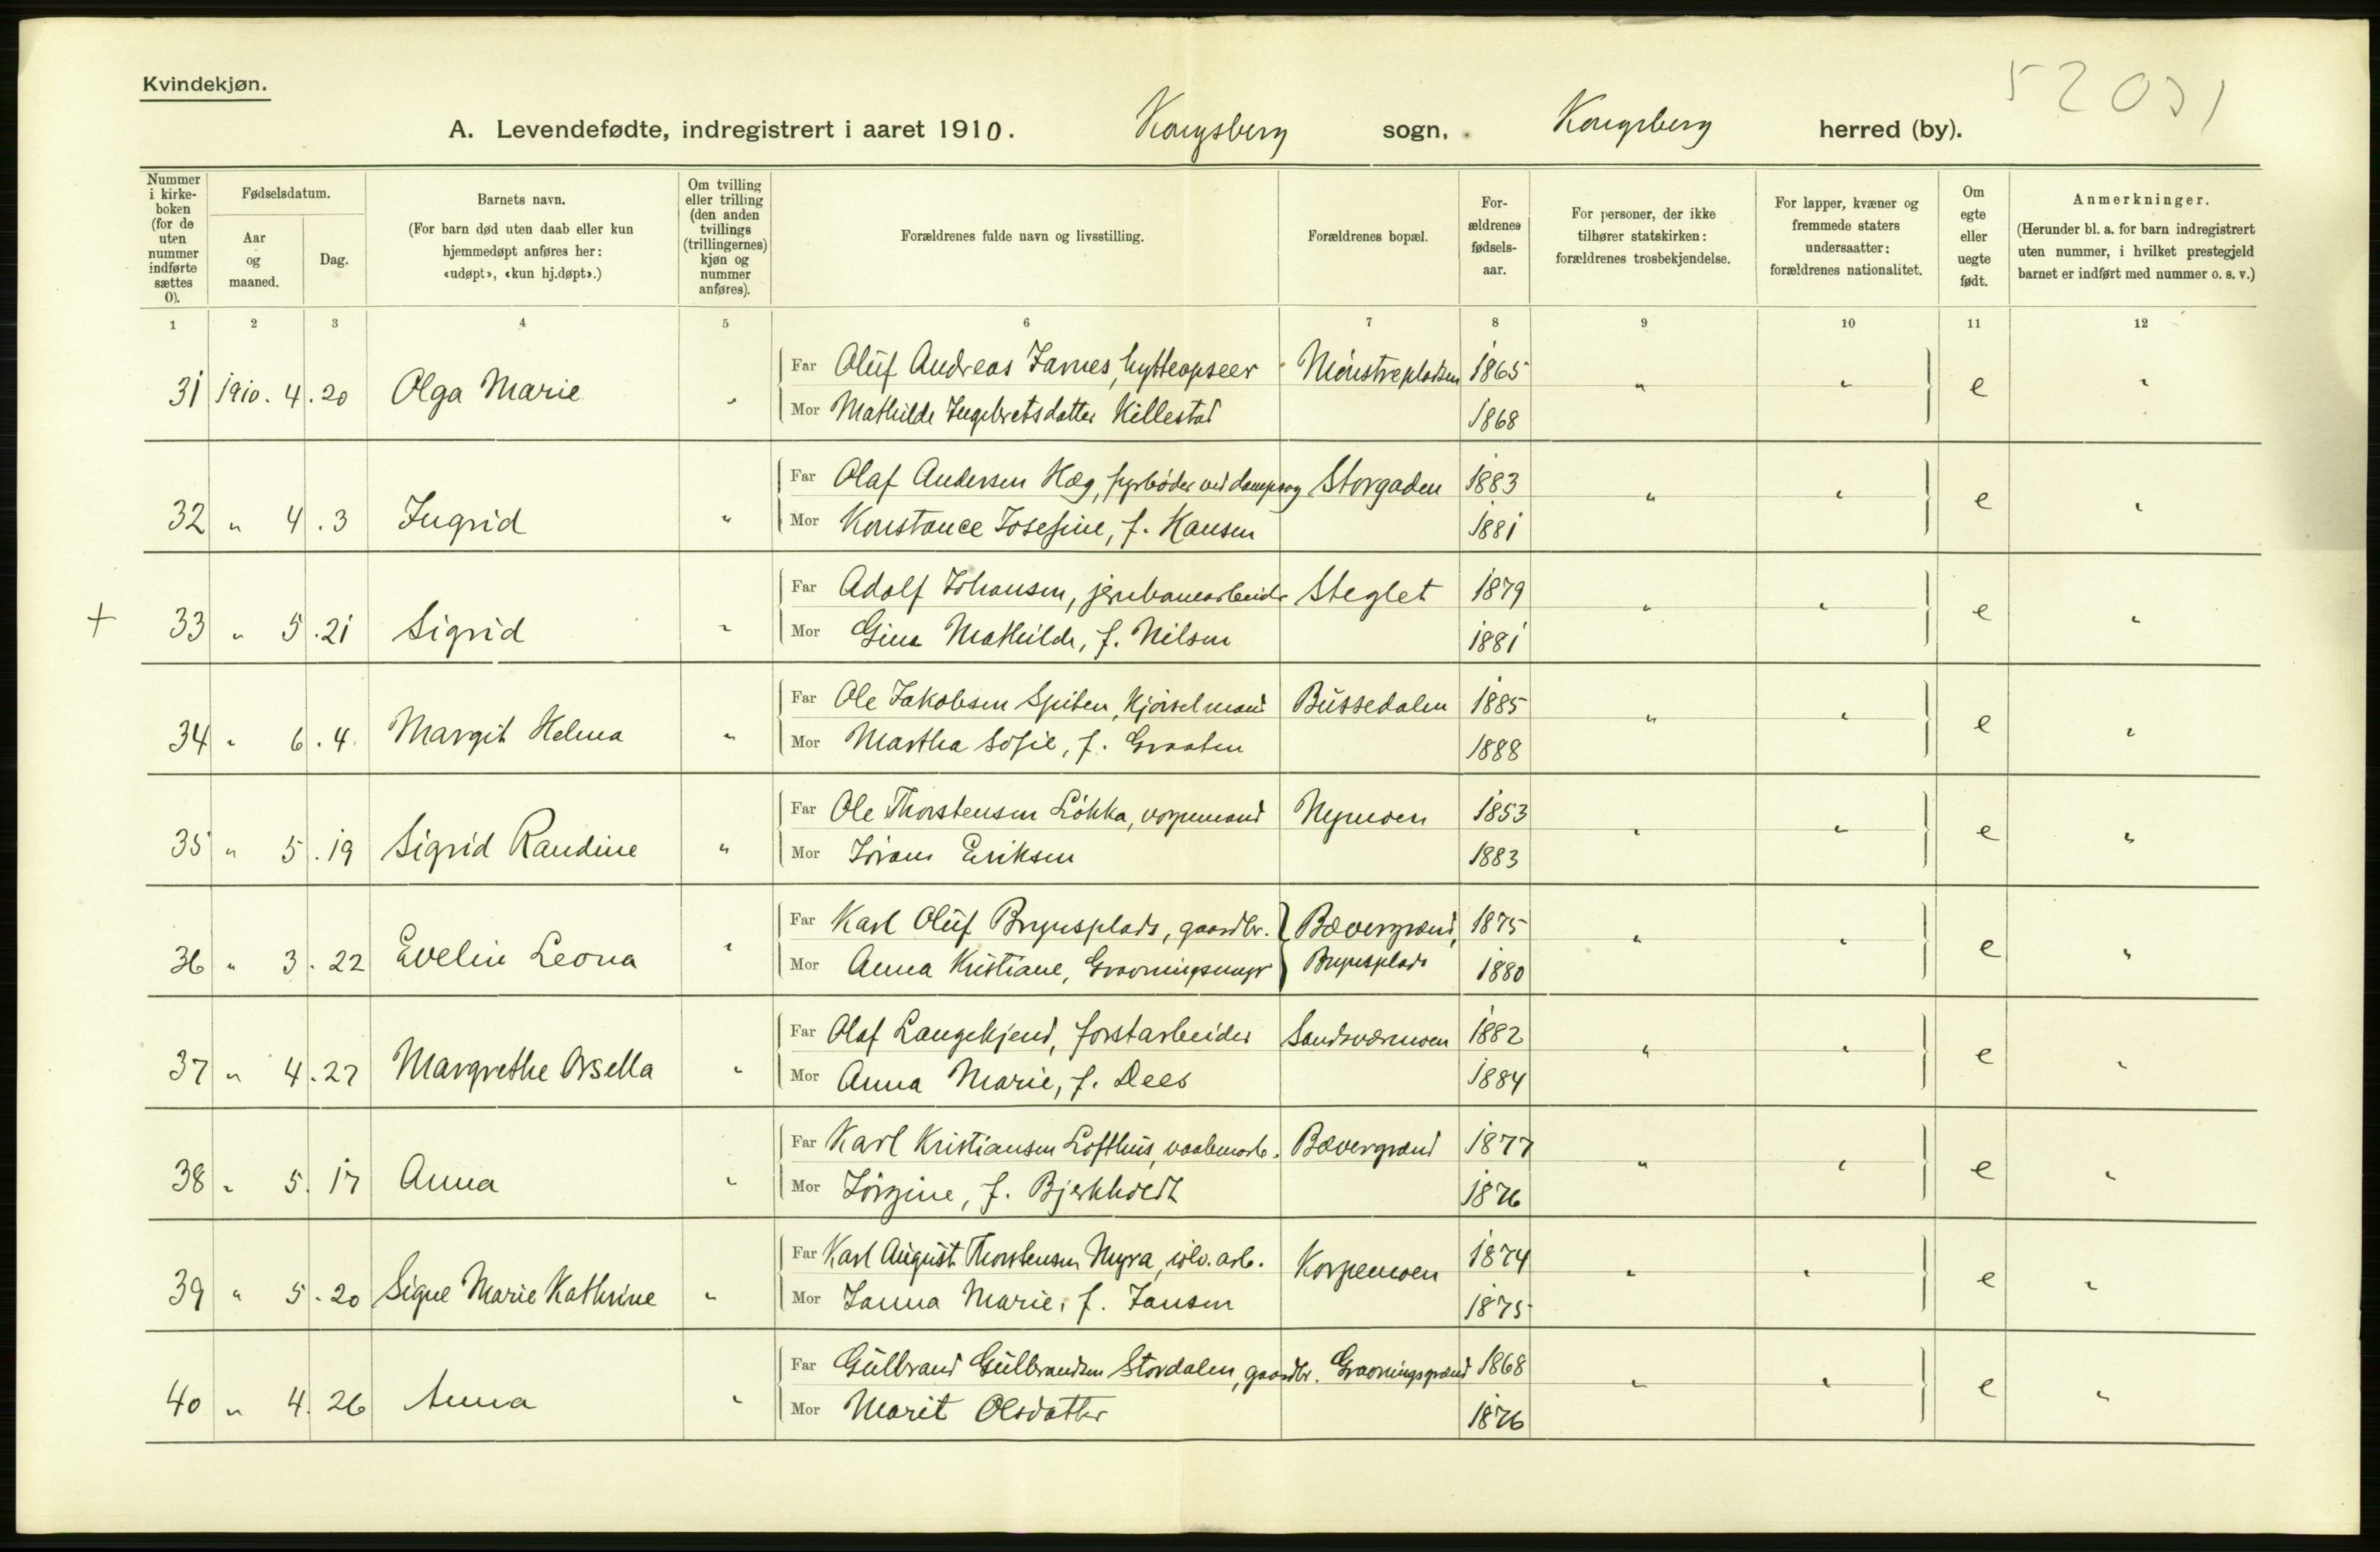 Kvindekjøn.
52031
A. Levendefødte, indregistrert i aaret 1910. Kongsberg sogn, Kongsberg herred (by).
Nummer i kirke-boken (for de uten nummer indførte sættes 0).
Fødselsdatum.
Aar og maaned.
Dag.
Barnets navn.
(For barn død uten daab eller kun hjemmedøpt anføres her: «udøpt», «kun hj.døpt».)
Om tvilling eller trilling (den anden tvillings (trillingernes) kjøn og nummer anføres).
Forældrenes fulde navn og livsstilling.
Forældrenes bopæl.
For-ældrenes fødsels-aar.
For personer, der ikke tilhører statskirken: forældrenes trosbekjendelse.
For lapper, kvæner og fremmede staters undersaatter: forældrenes nationalitet.
Om egte eller uegte født.
Anmerkninger.
(Herunder bl. a. for barn indregistrert uten nummer, i hvilket prestegjeld barnet er indført med nummer o. s. v.)
1 2 3 4 5 6 7 8 9 10 11 12
31 1910. 4. 20 Olga Marie " Far Oluf Andreas James, hytteopseer Mønstrepladsen 1865 " " e "
Mor Mathilde Ingebretsdatter Killestad 1868
32 " 4. 3 Ingrid " Far Olaf Andersen Hæg, fyrbøder ved dampsag Storgaden 1883 " " e "
Mor Konstance Josefine, f. Hansen 1881
+ 33 " 5. 21 Sigrid " Far Adolf Johansen, jernbanearbeider Steglet 1879 " " e "
Mor Gina Mathilde, f. Nilsen 1881
34 " 6. 4. Margit Helma " Far Ole Jakobsen Spiten, kjørselmand Bussedalen 1885 " " e "
Mor Martha Sofie, f. Graaten 1888
35 " 5. 19 Sigrid Randine " Far Ole Thorstensen Løkka, vognmand Nymoen 1853 " " e "
Mor Jørans Eriksen 1883
36 " 3. 22 Evelin Leona " Far Karl Oluf Brynsplads, gaardbr. Bævergrænd, 1875 " " e "
Mor Anna Kristiane, Brynsplads 1880
37 " 4. 27 Margrethe Orsella " Far Olaf Langekjend, forstarbeider Sandsværmoen 1882 " " e "
Mor Anna Marie, f. Dees 1884
38 " 5. 17 Anna " Far Karl Kristiansen Lofthus, vaabenarb. Bævergrænd 1877 " " e "
Mor Jørgine, f. Bjerkholdt 1876
39 " 5. 20 Signe Marie Kathrine " Far Karl August Thorstensen Myra, sølv. arb. Korpemoen 1874 " " e "
Mor Janna Marie, f. Jansen 1875
40 " 4. 26 Anna " Far Gulbrand Gulbrandsen Stordalen, gaardbr. Gravningsgrænd 1868 " " e "
Mor Marit Olsdatter 1876